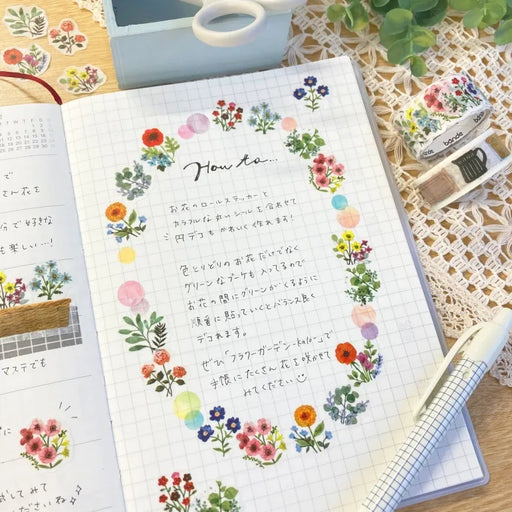 How to...
お花のロールステッカーと
カラフルな丸シールを合わせて
円デコもかわいく作れます!
色とりどりのお花だけでなく
グリーンなブーケも入ってるので
お花の間にグリーンがくるように
順番に貼っていくとバランス良く
デコれます。
ぜひ「フラワーガーデン-kala-」で
手帳にたくさん花を咲かせて
みてください
で
さん花を
分で好きな
も楽しい…!
マステでも
に
してみて
ださいね
bande